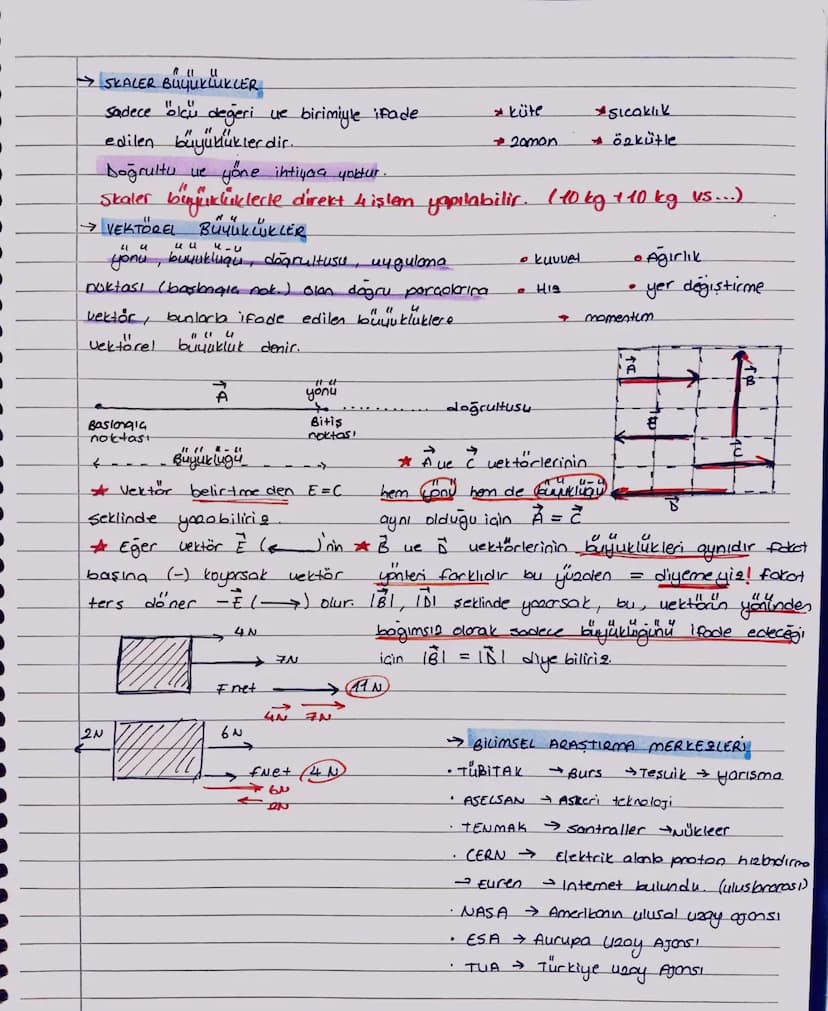 → SKALER BÜYÜKLÜKLER
Sadece ölçü değeri ve birimiyle ifade
edilen büyüklüklerdir.
* kütle * sıcaklık
* zaman * özkütle
Doğrultu ve yöne ihtiyaç yoktur.
Skaler büyüklüklerle direkt 4 işlem yapılabilir. (10 kg + 10 kg vs...)
→ VEKTÖREL BÜYÜKLÜKLER
yönü, büyüklüğü, doğrultusu, uygulama
noktası (başlangıç nok.) olan doğru parçalarına
vektör, bunlarla ifade edilen büyüklüklere
vektörel büyüklük denir.
• kuvvet • Ağırlık
• Hız • yer değiştirme
* momentum
A
yönü
doğrultusu
Başlangıç
noktası
Bitiş
noktası
Büyüklüğü
A
B
E
C
D
* Vektör belirtmeden E=C
şeklinde yazabiliriz.
* A ve C vektörlerinin
hem yönü hem de büyüklüğü
aynı olduğu için A = C
* Eğer vektör E (←)'nin
başına (-) koyarsak vektör
ters döner -E (→) olur.
* B ve D vektörlerinin büyüklükleri aynıdır fakat
yönleri farklıdır bu yüzden = diyemeyiz! fakat
|B|, |D| şeklinde yazarsak, bu, vektörün yönünden
bağımsız olarak sadece büyüklüğünü ifade edeceği
için |B| = |D| diye biliriz.
4N
7N
Fnet 11N
4N 7N
2N 6N
fnet 4N
6N
2N
→ BİLİMSEL ARAŞTIRMA MERKEZLERİ
• TÜBİTAK → Burs → Teşvik → Yarışma
• ASELSAN → Askeri teknoloji
• TENMAK → Santraller → Nükleer
• CERN → Elektrik alanla proton hızlandırma
→ Evren → İnternet bulundu. (uluslararası)
• NASA → Amerikanın ulusal uzay ajansı
• ESA → Avrupa Uzay Ajansı
• TUA → Türkiye uzay Ajansı